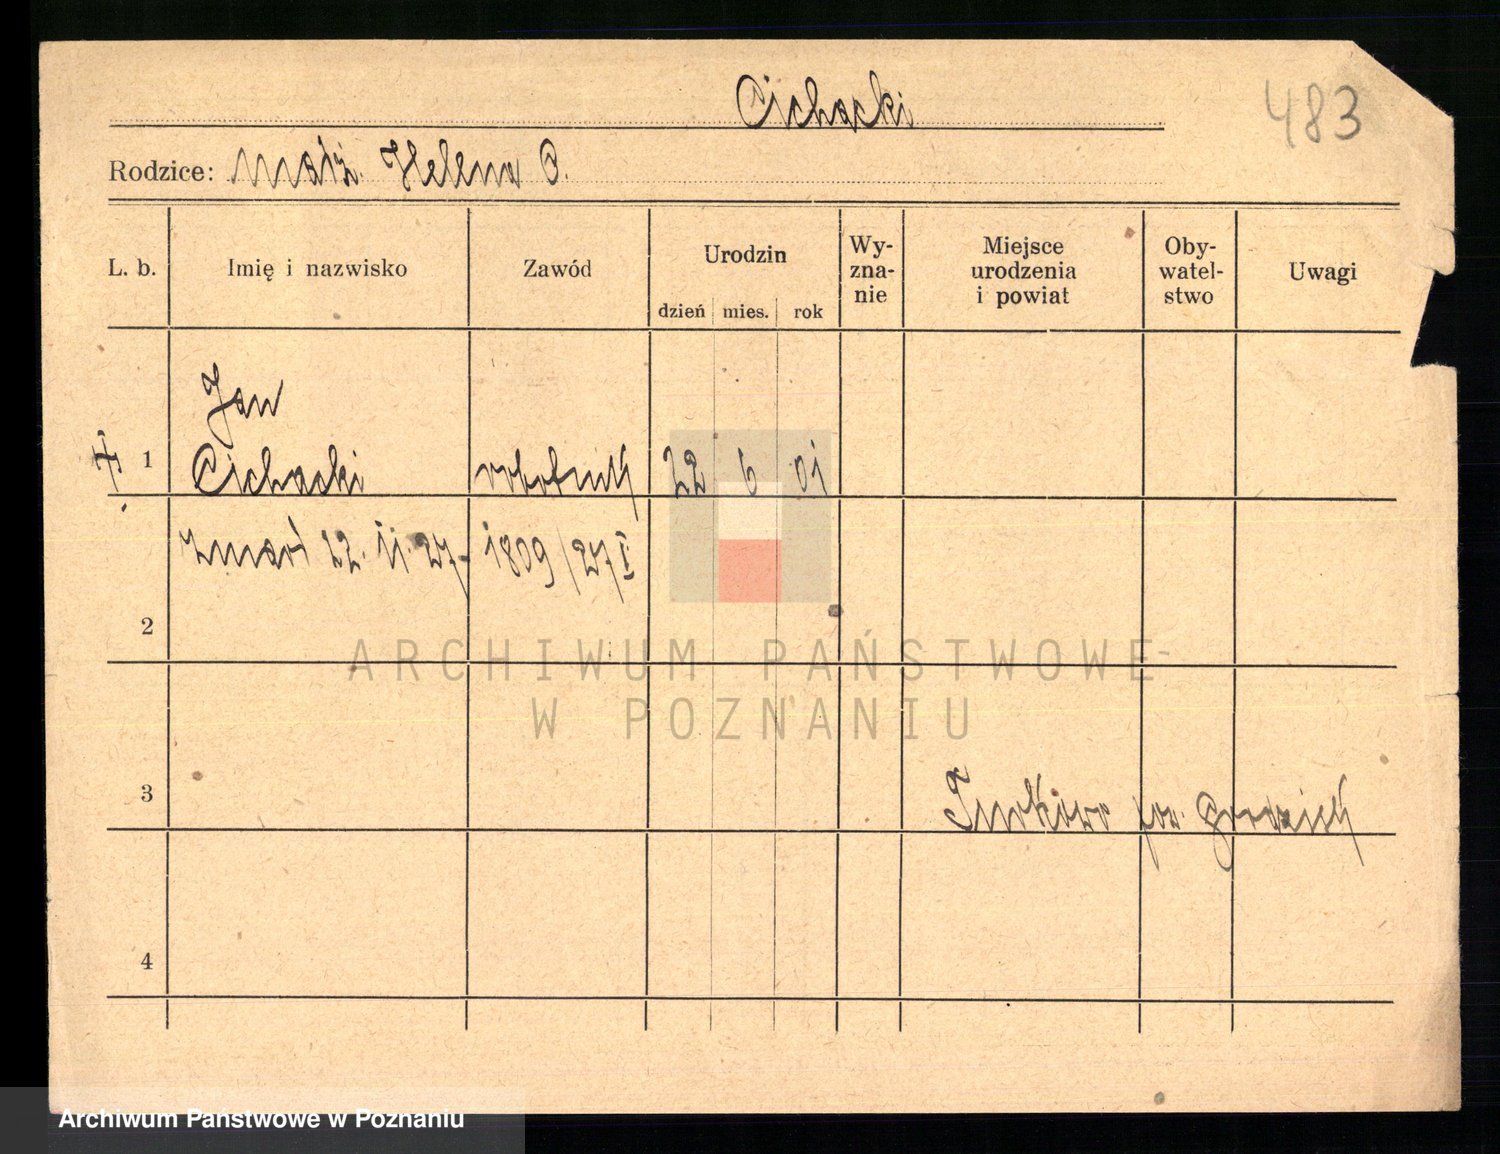 Cichacki
483
Rodzice: małż. Helena C.
L. b. Imię i nazwisko Zawód Urodzin dzień mies. rok Wy-zna-nie Miejsce urodzenia i powiat Oby-watel-stwo Uwagi
Jan
1 Cichacki robotnik 22 6 01
zmarł 22. 11. 27 - 1809/27 I
2
ARCHIWUM PAŃSTWOWE
W POZNANIU
3 Turkowo pow. grodzisk
4
Archiwum Państwowe w Poznaniu